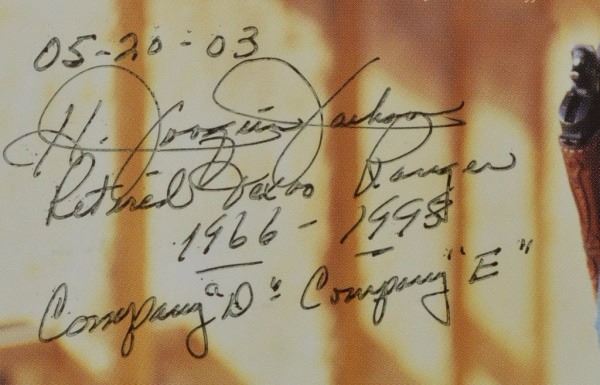 05-20-03
H. Joaquin Jackson
Retired Texas Ranger
1966 - 1993
Company "D" Company "E"